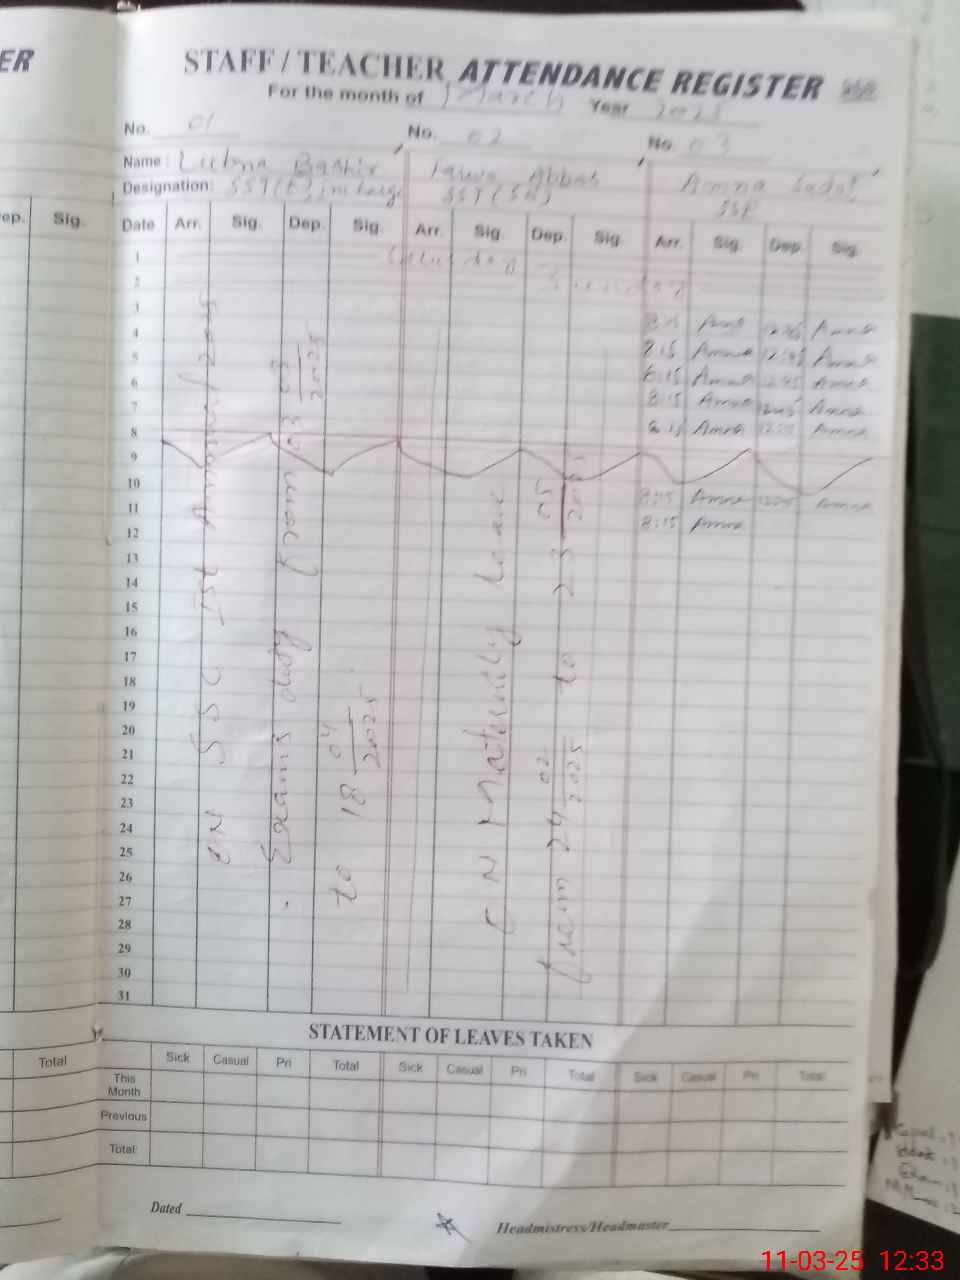 ER
STAFF / TEACHER ATTENDANCE REGISTER
For the month of March Year 2025
No. 01 No. 02 No 03
Name: Lubna Bashir Abbas Amna
Designation: SST(E) Incharge SST (Sc)
ep. Sig. Date Arr. Sig. Dep. Sig. Arr. Sig Dep. Sig. Arr. Sig Dep Sig.
1
2
3
4 Amna 12:45 Amna
5 8:15 Amna 12:45 Amna
6 8:15 Amna 12:45 Amna
7 8:15 Amna 12:45 Amna
8 8:15 Amna Amna
9
10
11 8:15 Amna Amna
12 8:15 Amna
13
14
15
16
17
18
19
20
21
22
23
24
25
26
27
28
29
30
31
ON SSC Ist Annual / 2025
Exams duty from 03 03 2025
to 18 04 2025
ON Maternity Leave
from 24 02 2025 to 23 05 2025
STATEMENT OF LEAVES TAKEN
Total Sick Casual Pri Total Sick Casual Pri Total Sick Casual Pri Total
This Month
Previous
Total
Dated
Headmistress/Headmaster
11-03-25 12:33